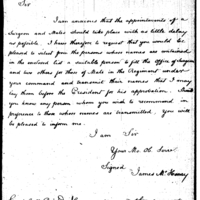 Sir
I am anxious that the appointments of a
Surgeon and Mates should take place with as little delay
as possible. I have therefore to request that you would be
pleased to select from the persons whose names are contained
in the enclosed list a suitable person to fill the office of Surgeon
and two others for those of Mates in the Regiment under
your command and transmit their names that I may
lay them before the President for his approbation. Should
you know any person whom you wish to recommend in
preference to those whose names are transmitted. You will
be pleased to inform me.
I am Sir
Your Mo. Ob. Servt
Signed
James McHenry